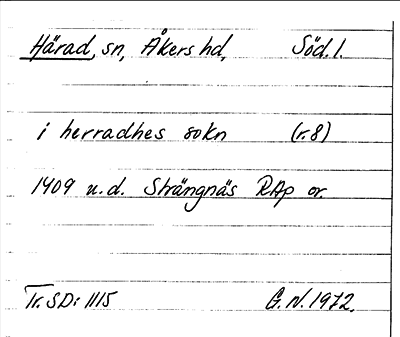 Härad, sn, Åkers hd, Söd. l.
i herradhes sokn (r. 8)
1409 u. d. Strängnäs RAp or.
Tr. SD: 1115 G. N. 1972.